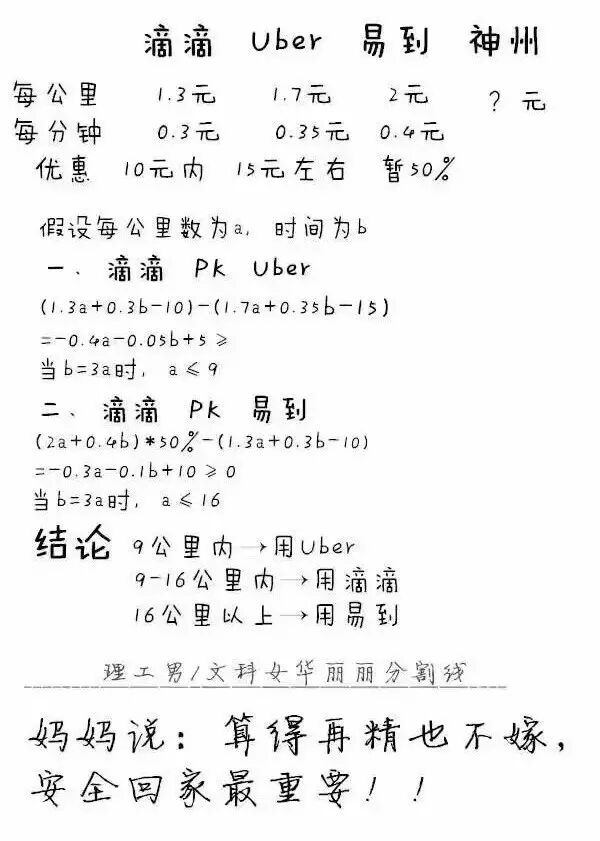 滴滴 Uber 易到 神州
每公里 1.3元 1.7元 2元 ?元
每分钟 0.3元 0.35元 0.4元
优惠 10元内 15元左右 暂50%
假设每公里数为a，时间为b
一、滴滴 PK Uber
(1.3a+0.3b-10)-(1.7a+0.35b-15)
=-0.4a-0.05b+5≥
当b=3a时，a≤9
二、滴滴 PK 易到
(2a+0.4b)*50%-(1.3a+0.3b-10)
=-0.3a-0.1b+10≥0
当b=3a时，a≤16
结论 9公里内→用Uber
9-16公里内→用滴滴
16公里以上→用易到
理工男/文科女华丽丽分割线
妈妈说：算得再精也不嫁，
安全回家最重要！！